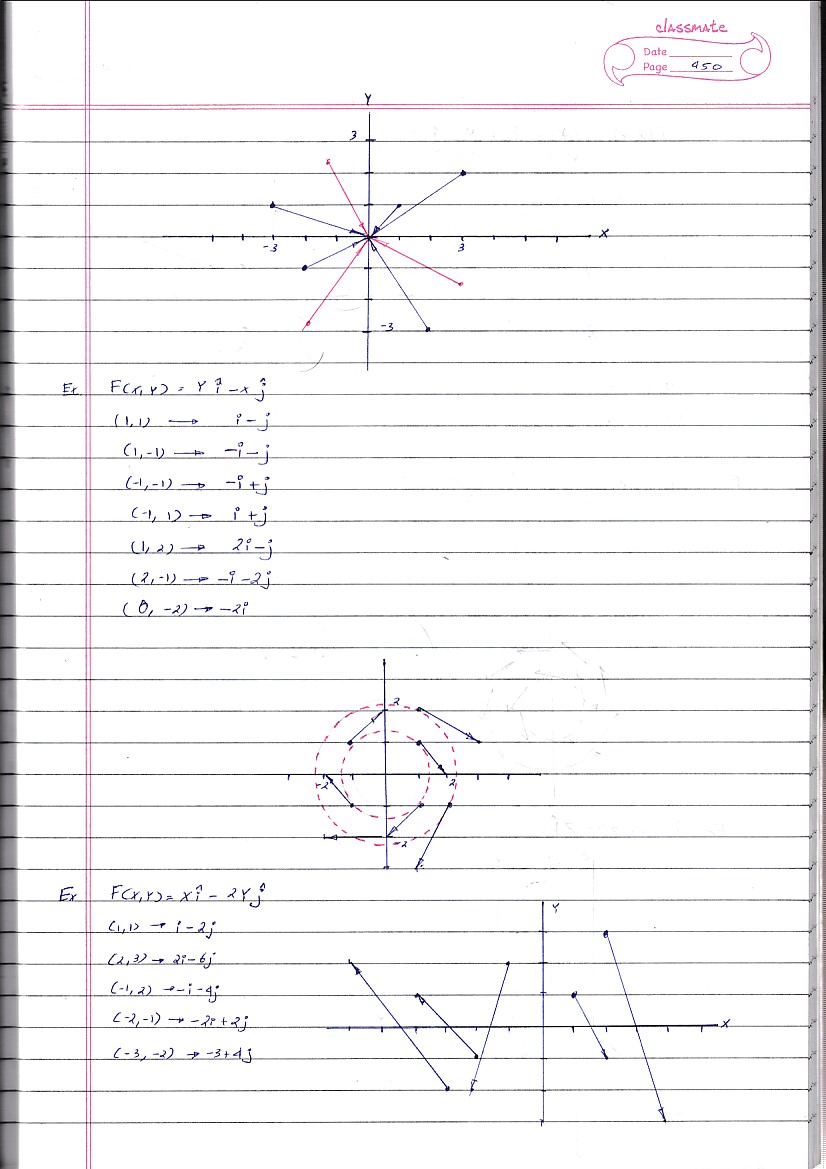 classmate
Date
Page 450
Y
3
-3 3 X
-3
Ex F(x,y) = y î - x ĵ
(1,1) → i - j
(1,-1) → -i - j
(-1,-1) → -i + j
(-1, 1) → i + j
(1, 2) → 2i - j
(2,-1) → -i - 2j
(0, -2) → -2i
2
-2 2
-2
Ex F(x,y) = x î - 2y ĵ
(1,1) → i - 2j
(2,3) → 2i - 6j
(-1,2) → -i - 4j
(-2,-1) → -2i + 2j
(-3,-2) → -3 + 4j
Y
X